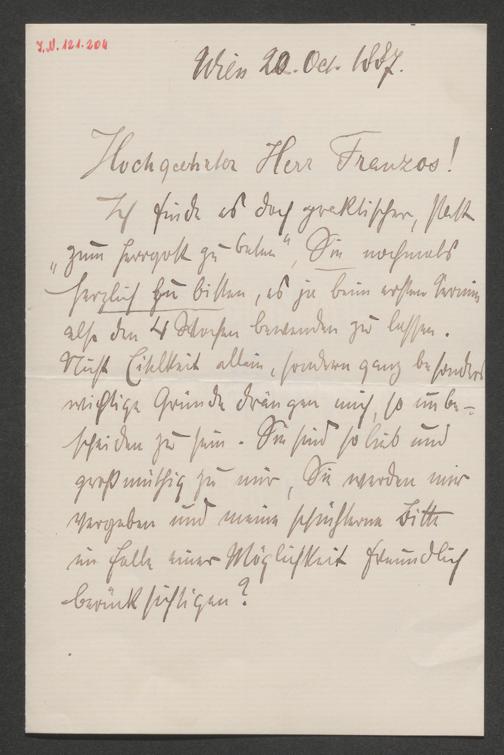 J.N. 121.204
Wien 20. Oct. 1887.
Hochgeehrter Herr Franzos!
Ich finde es doch praktischer, statt
„zum Herrgott zu beten“, Sie nochmals
herzlich zu bitten, es ja beim ersten Termin
also den 4 Wochen bewenden zu lassen.
Nicht Eitelkeit allein, sondern ganz besonders
wichtige Gründe drängen mich, so unbe-
scheiden zu sein. Sie sind so lieb und
großmüthig zu mir, Sie werden mir
vergeben und meine schüchterne Bitte
im Falle einer Möglichkeit freundlich
berücksichtigen?